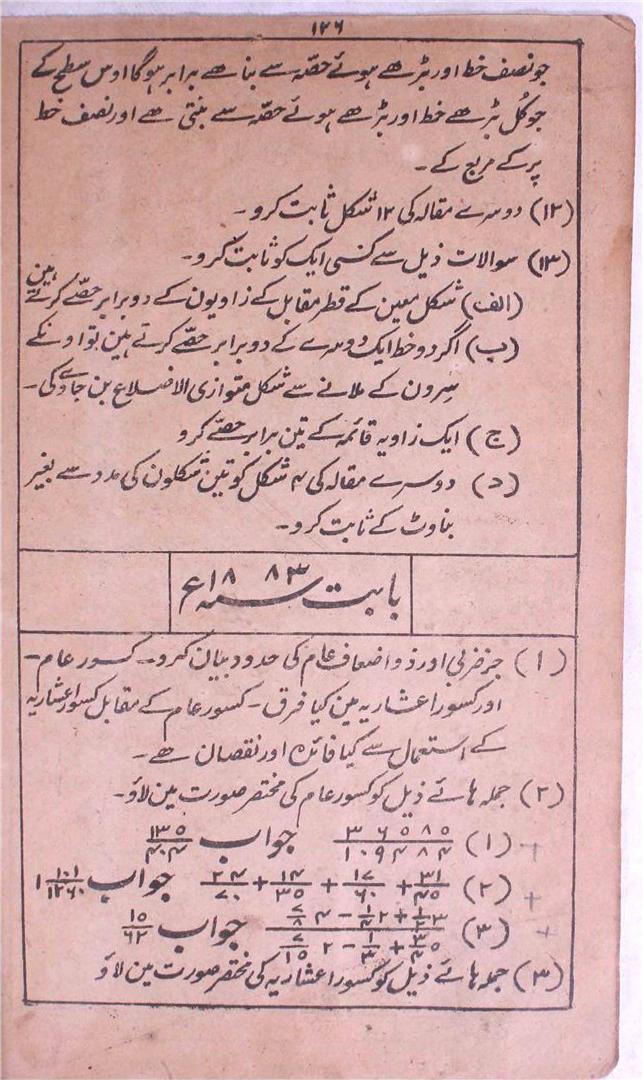 ۱۲۶
جو نصف خط اور بڑھے ہوئے حصّہ سے بنا ہے برابر ہوگا اوس سطح کے
جو کُل بڑھے خط اور بڑھے ہوئے حصّہ سے بنتی ہے اور نصف خط
پر کے مربع کے ۔
(۱۲) دوسرے مقالہ کی ۱۲ شکل ثابت کرو ۔
(۱۳) سوالات ذیل سے کسی ایک کو ثابت کرو ۔
(الف) شکل معین کے قطر مقابل کے زاویون کے دو برابر حصّے کرتے ہین
(ب) اگر دو خط ایک دوسرے کے دو برابر حصّے کرتے ہین تو اونکے
سرون کے ملانے سے شکل متوازی الاضلاع بن جاوےگی ۔
(ج) ایک زاویہ قائمہ کے تین برابر حصّے کرو
(د) دوسرے مقالہ کی ۴ شکل کو تین شکلون کی مدد سے بغیر
بناوٹ کے ثابت کرو ۔
بابت سنہ ۱۸۸۳ ء
(۱) جزضربی اور ذو اضعاف عام کی حدود بیان کرو ۔ کسور عام ۔
اور کسور اعشاریہ مین کیا فرق ۔ کسور عام کے مقابل کسور اعشاریہ
کے استعمال سے کیا فائدہ اور نقصان ہے ۔
(۲) جملہ ہائے ذیل کو کسور عام کی مختصر صورت مین لاؤ ۔
(۱) ۳۶۵۸۵/۱۰۹۴۸۴ جواب ۱۳۵/۴۰۴
(۲) ۳۱/۴۵ + ۱۷/۶۰ + ۱۴/۳۵ + ۲۴/۷۰ جواب ۱ ۱۰۱/۱۲۶۰
(۳) (۳ ۱/۲ + ۲ ۱/۴ − ۴ ۷/۸) / (۵ ۳/۴ + ۱/۳ − ۲ ۷/۱۵) جواب ۱۵/۶۲
(۳) جملہ ہائے ذیل کو کسور اعشاریہ کی مختصر صورت مین لاؤ